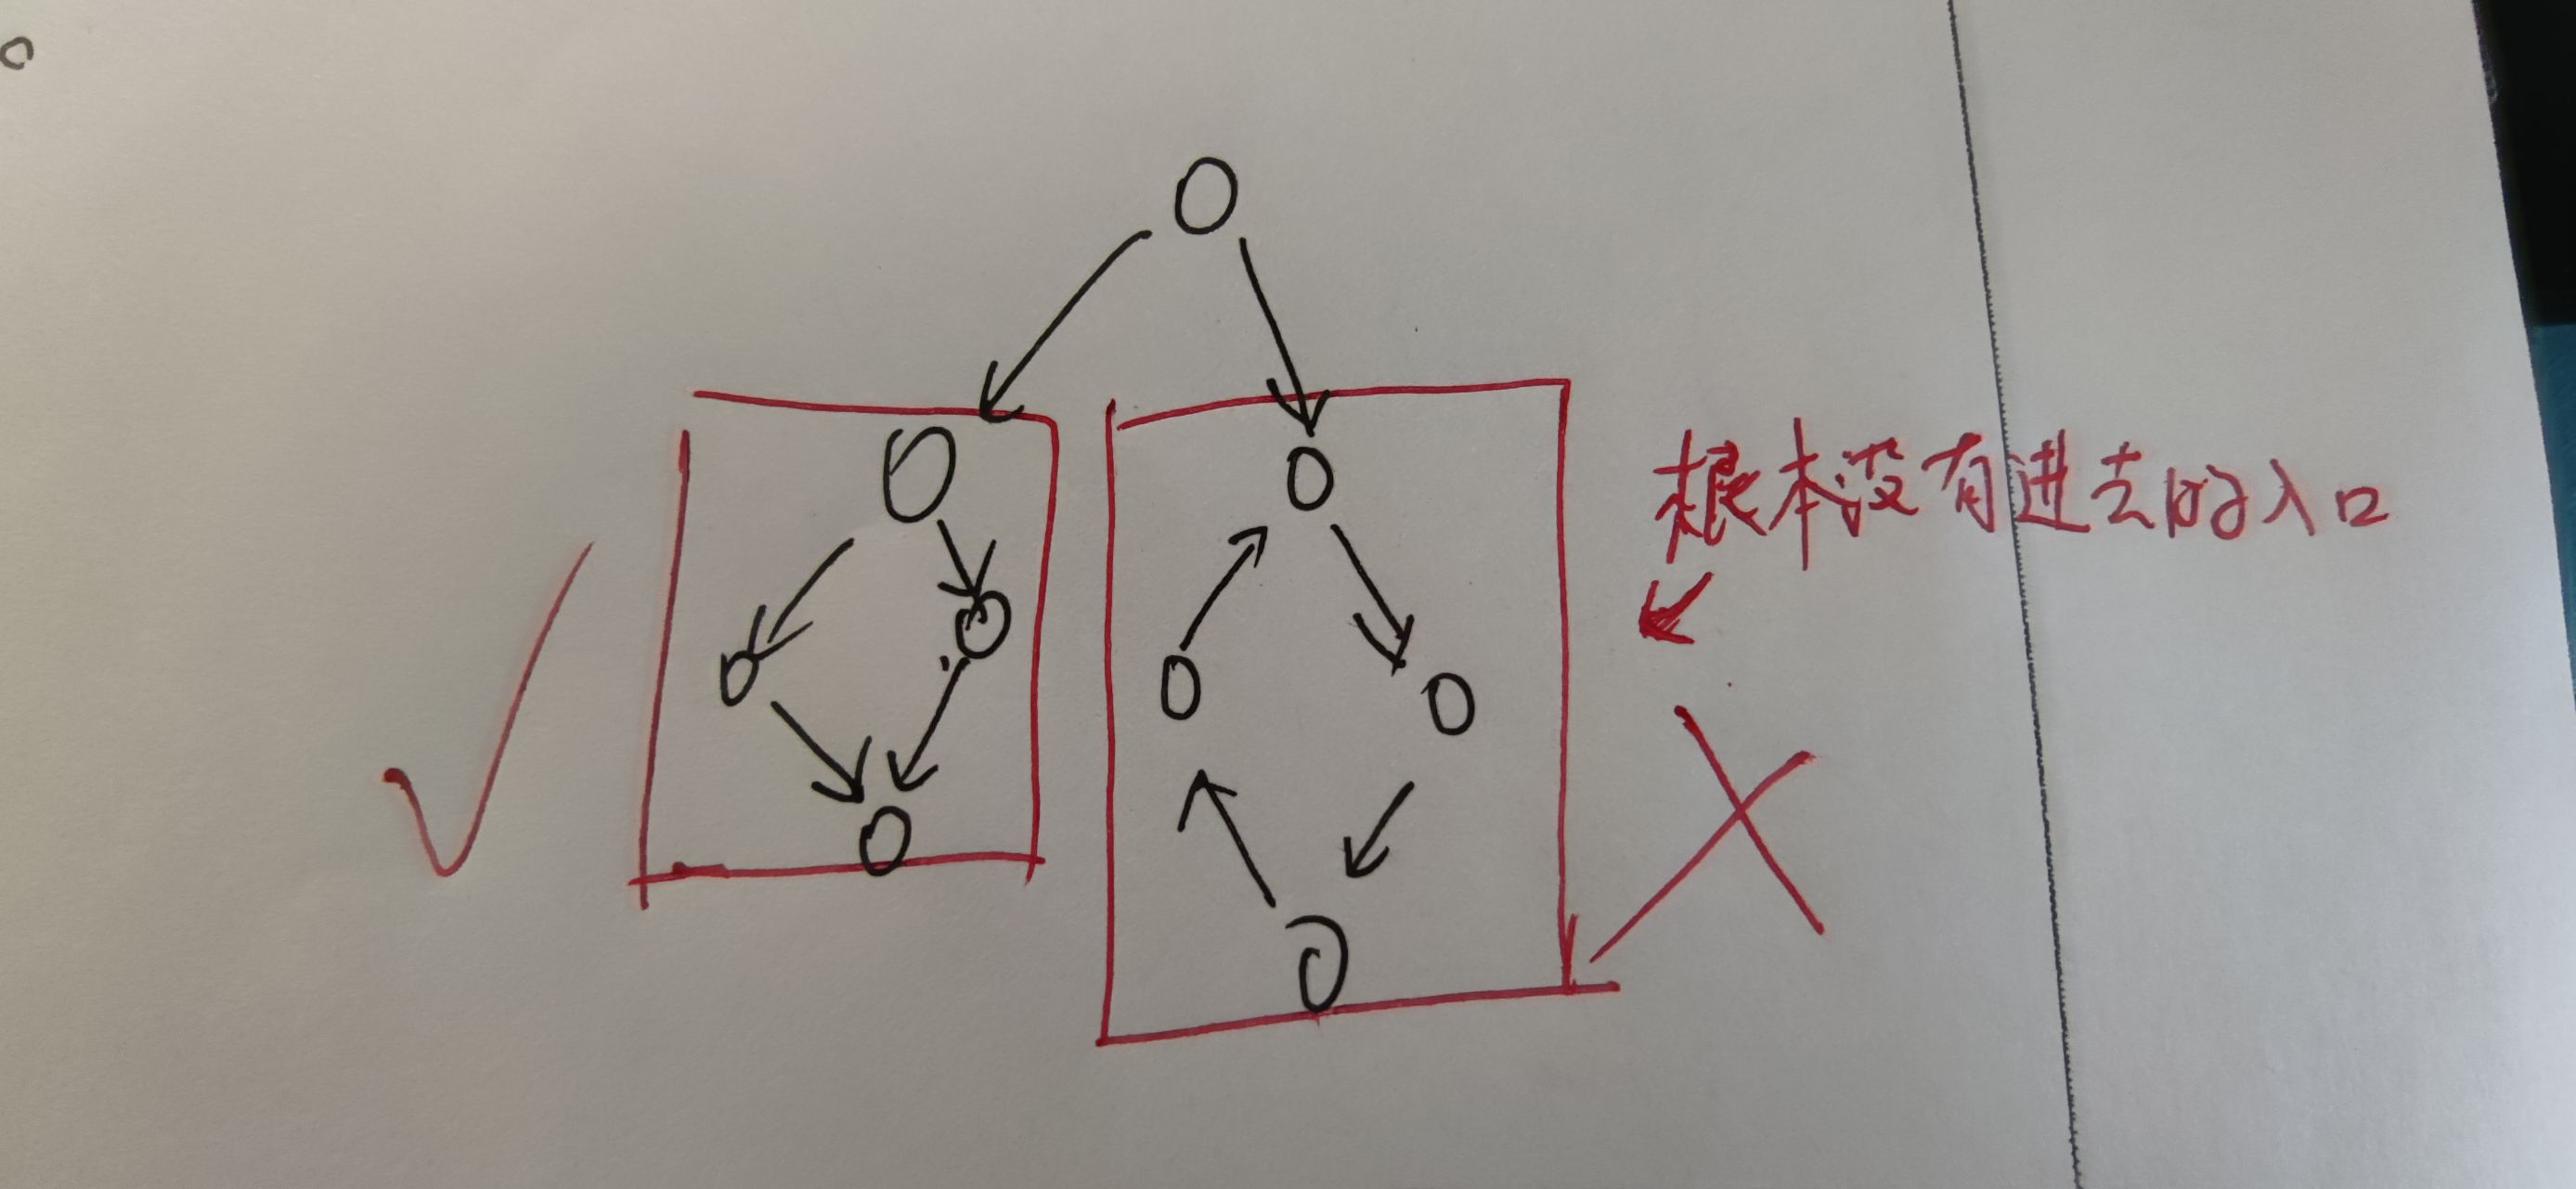 根本没有进去的入口